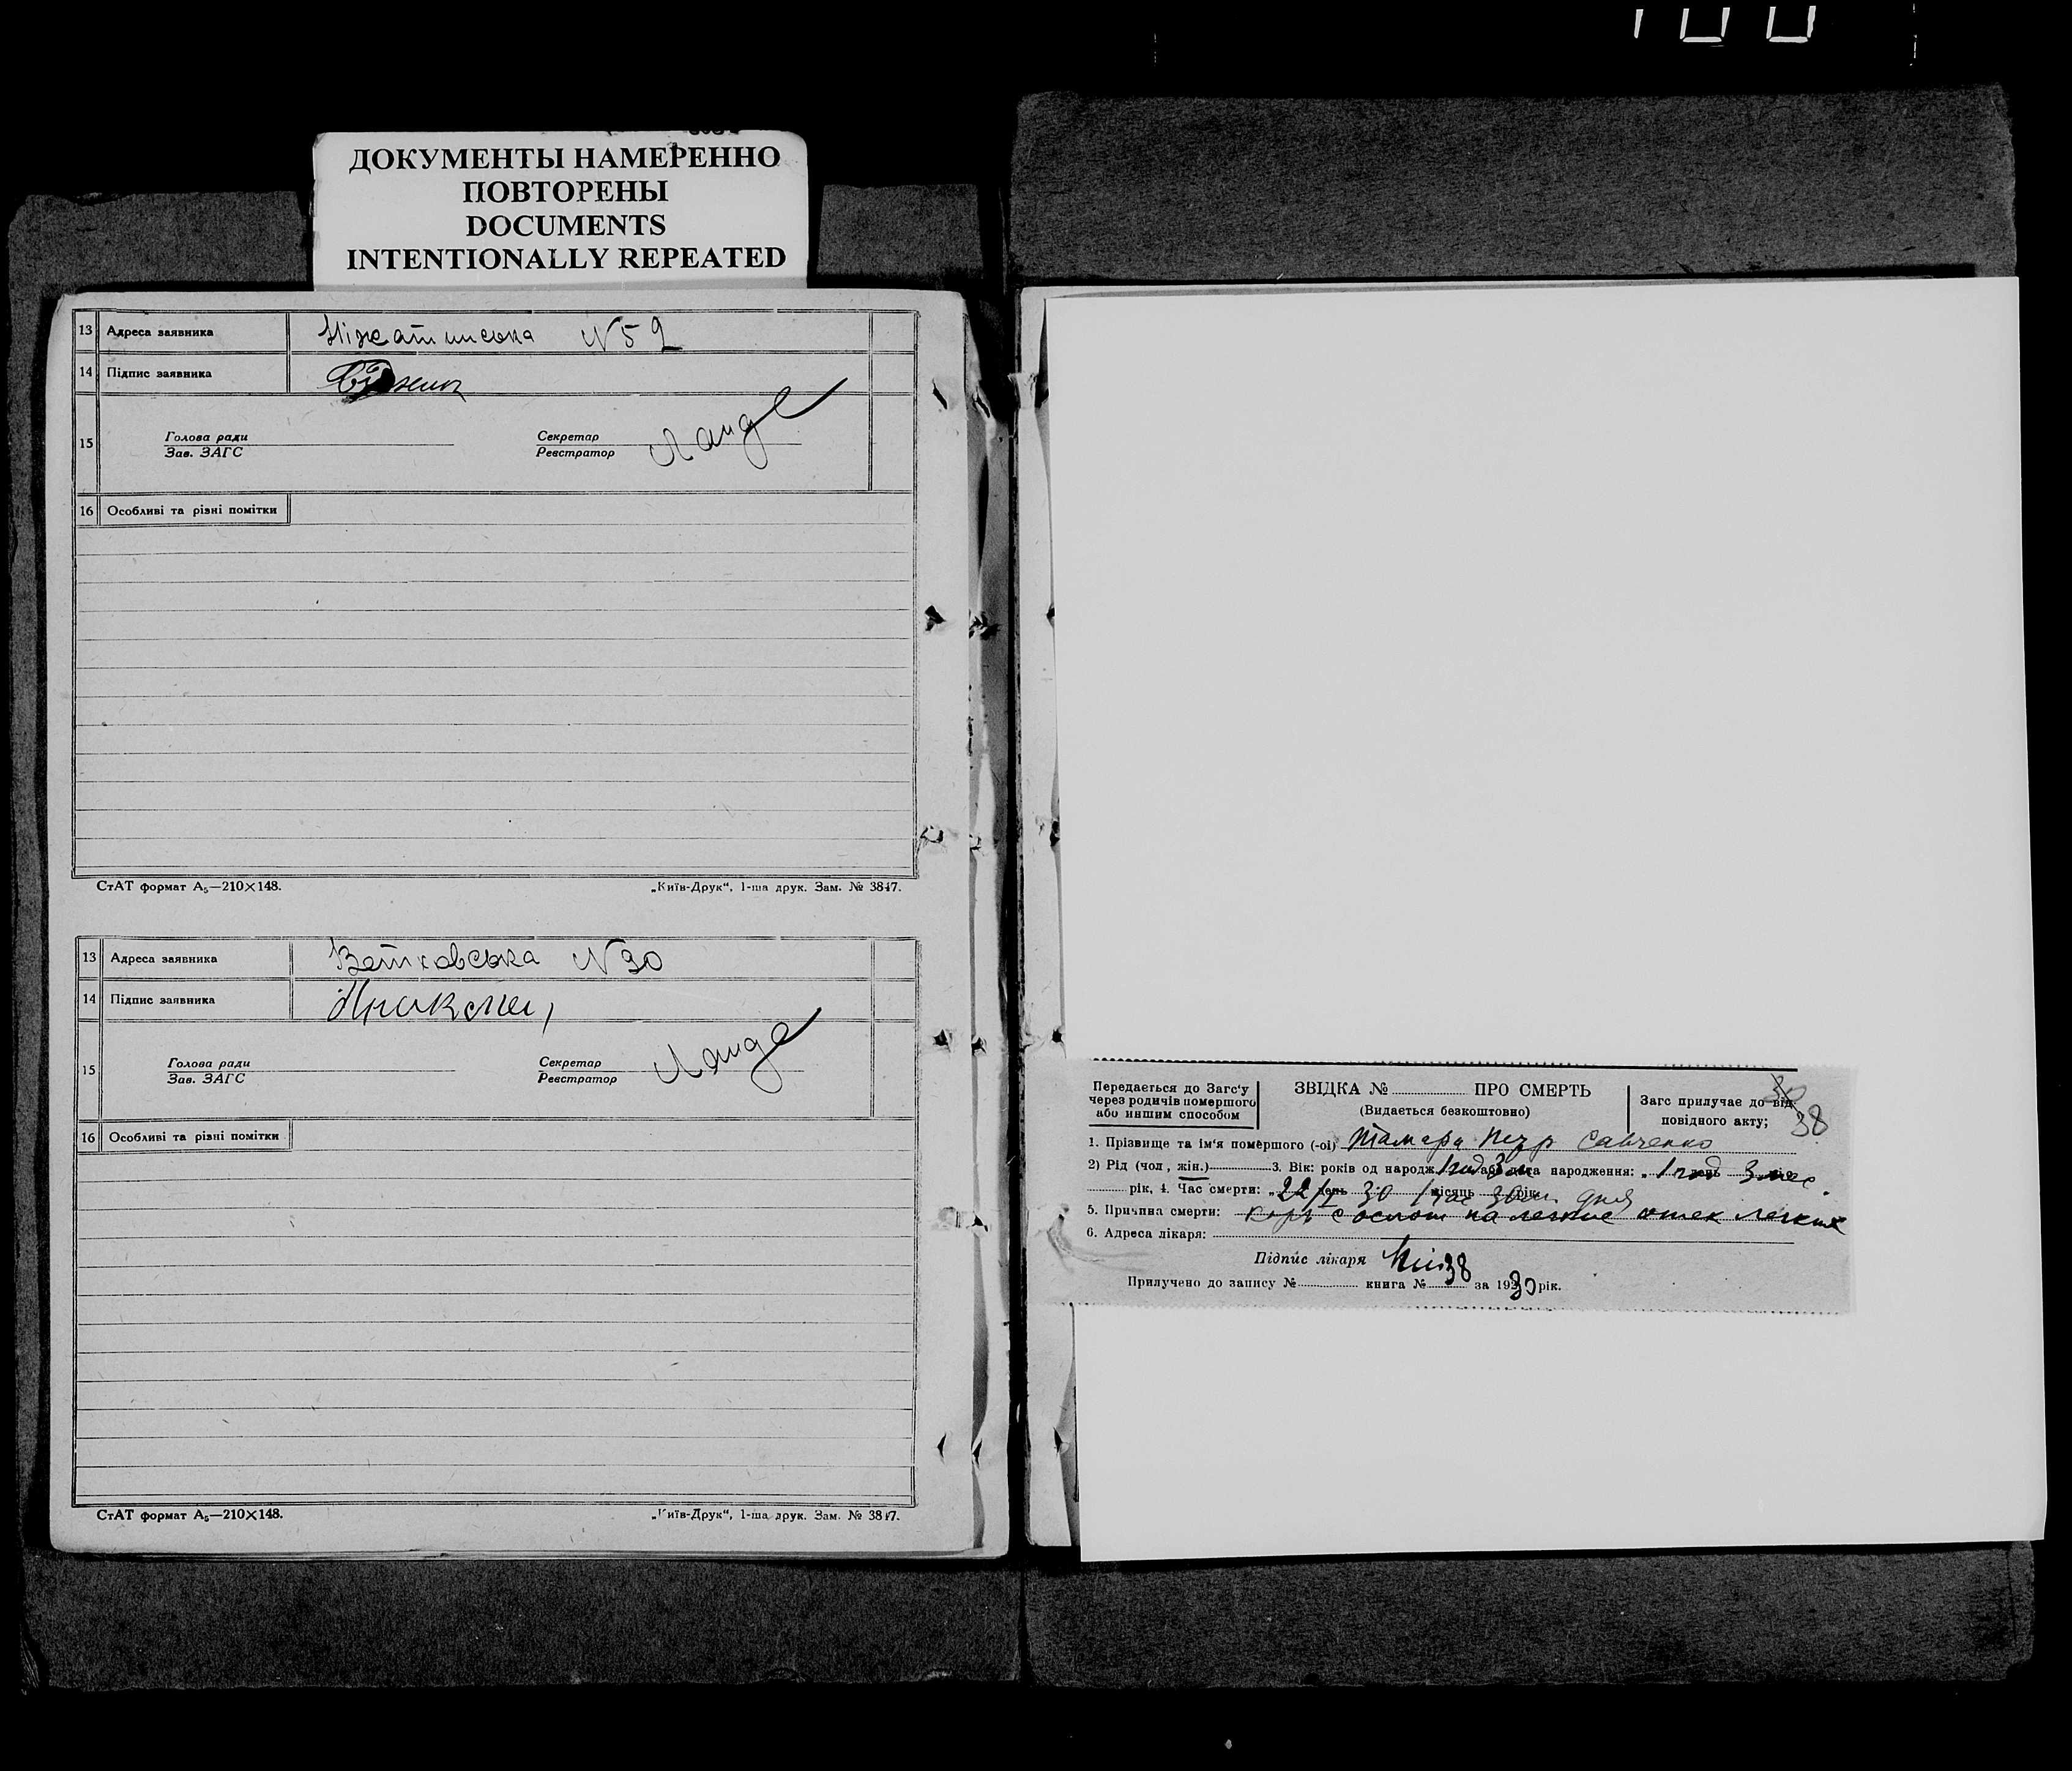 ДОКУМЕНТЫ НАМЕРЕННО
ПОВТОРЕНЫ
DOCUMENTS
INTENTIONALLY REPEATED
13 Адреса заявника N 59
14 Підпис заявника
15 Голова ради Секретар
Зав. ЗАГС Реєстратор Ланge
16 Особливі та різні помітки
СтАТ формат А₅—210×148. „Київ-Друк“, 1-ша друк. Зам. № 3847.
13 Адреса заявника Ветковська N 30
14 Підпис заявника
15 Голова ради Секретар
Зав. ЗАГС Реєстратор Ланge
16 Особливі та різні помітки
СтАТ формат А₅—210×148. „Київ-Друк“, 1-ша друк. Зам. № 3847.
Передається до Загс'у
через родичів помершого
або иншим способом
ЗВІДКА № ПРО СМЕРТЬ
(Видається безкоштовно)
Загс прилучає до від-
повідного акту; 38
1. Прізвище та ім'я помершого (-ої) Тамара Петр Савченко
2) Рід (чол, жін.) 3. Вік: років од народж. дата народження: „ 1 год день 3 мес
рік, 4. Час смерти: „ 22/I день 30 місяць рік дня
5. Причина смерти: корь сослож на легкие отек легких
6. Адреса лікаря:
Підпис лікаря
Прилучено до запису № книга № 38 за 1930 рік.